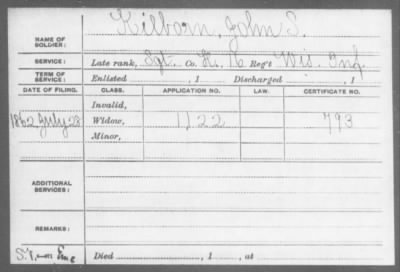 NAME OF SOLDIER: Kilborn, John S.
SERVICE: Late rank, Sgt. Co. K, 16 Reg't Wis. Inf.
TERM OF SERVICE: Enlisted , 1 Discharged , 1
DATE OF FILING. CLASS. APPLICATION NO. LAW. CERTIFICATE NO.
Invalid,
1862 July 28 Widow, 1122 793
Minor,
ADDITIONAL SERVICES:
REMARKS:
Died , 1 , at